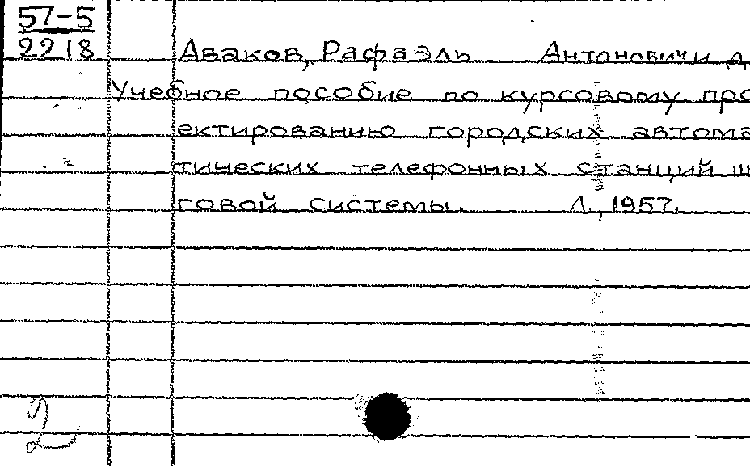 57-5
2218
Аваков, Рафаэль Антонович и д
Учебное пособие по курсовому про
ектированию городских автома
тических телефонных станций ш
говой системы. Л., 1957.
2